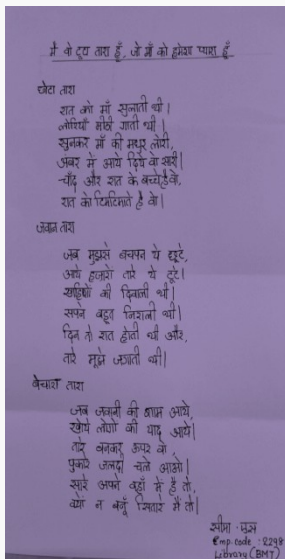 मैं वो टूटा तारा हूँ, जो माँ को हमेशा प्यारा हूँ
छोटा तारा
रात को माँ सुलाती थी।
लोरियाँ मीठी गाती थी।
सुनकर माँ की मधुर लोरी,
अंबर मे आये दिये वो सारी।
चाँद और रात के बच्चे है वो,
रात को टिमटिमाते है वो।
जवान तारा
जब मुझसे बचपन थे छूटे,
आये हजारो तारे थे टूटे।
की दिवाली थी।
सपने बहुत निराली थी।
दिन तो रात होती थी और,
तारे मूझे जगाती थी।
बेचारा तारा
जब जवानी की शाम आये,
खोये लोगो की याद आये।
तारे बनकर ऊपर वो
पुकारे जलदी चले आओ।
सारे अपने वहाँ पे है तो,
क्यों न बनूँ सितारे मैं तो।
सीमा
Emp. code : 2298
Library (BMT)